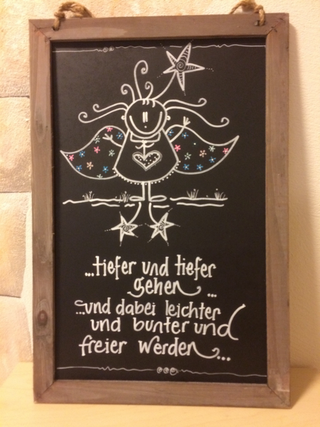 ...tiefer und tiefer
gehen...
...und dabei leichter
und bunter und
freier werden...